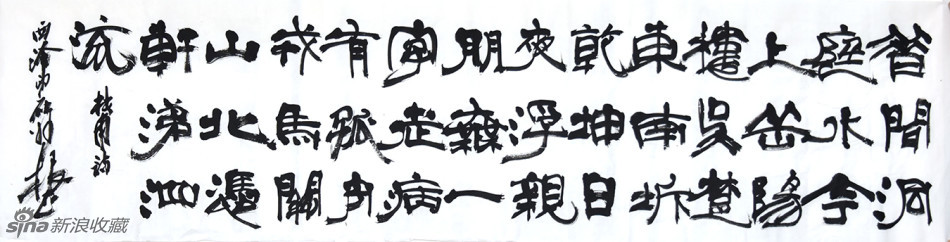 昔聞洞
庭水今
上岳陽
樓吳楚
東南坼
乾坤日
夜浮親
朋無一
字老病
有孤舟
戎馬關
山北憑
軒涕泗
流
杜甫詩
sina新浪收藏